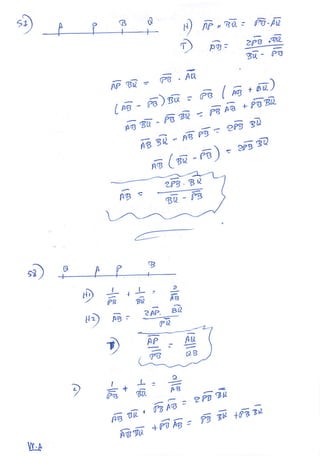 A P B Q
H) AP · BQ = PB · AQ
T) AB = 2PB · BQ / BQ - PB
AP BQ = PB · AQ
(AB - PB) BQ = PB (AB + BQ)
AB BQ - PB BQ = PB AB + PB BQ
AB BQ - AB PB = 2PB BQ
AB (BQ - PB) = 2PB BQ
AB = 2PB · BQ / BQ - PB
58) Q A P B
H1) 1/PB + 1/BQ = 2/AB
H2) AB =
T) AP/PB = AQ/QB
1/PB + 1/BQ = 2/AB
AB BQ + PB AB = 2PB BQ
AB BQ + PB AB = PB BQ + PB BQ